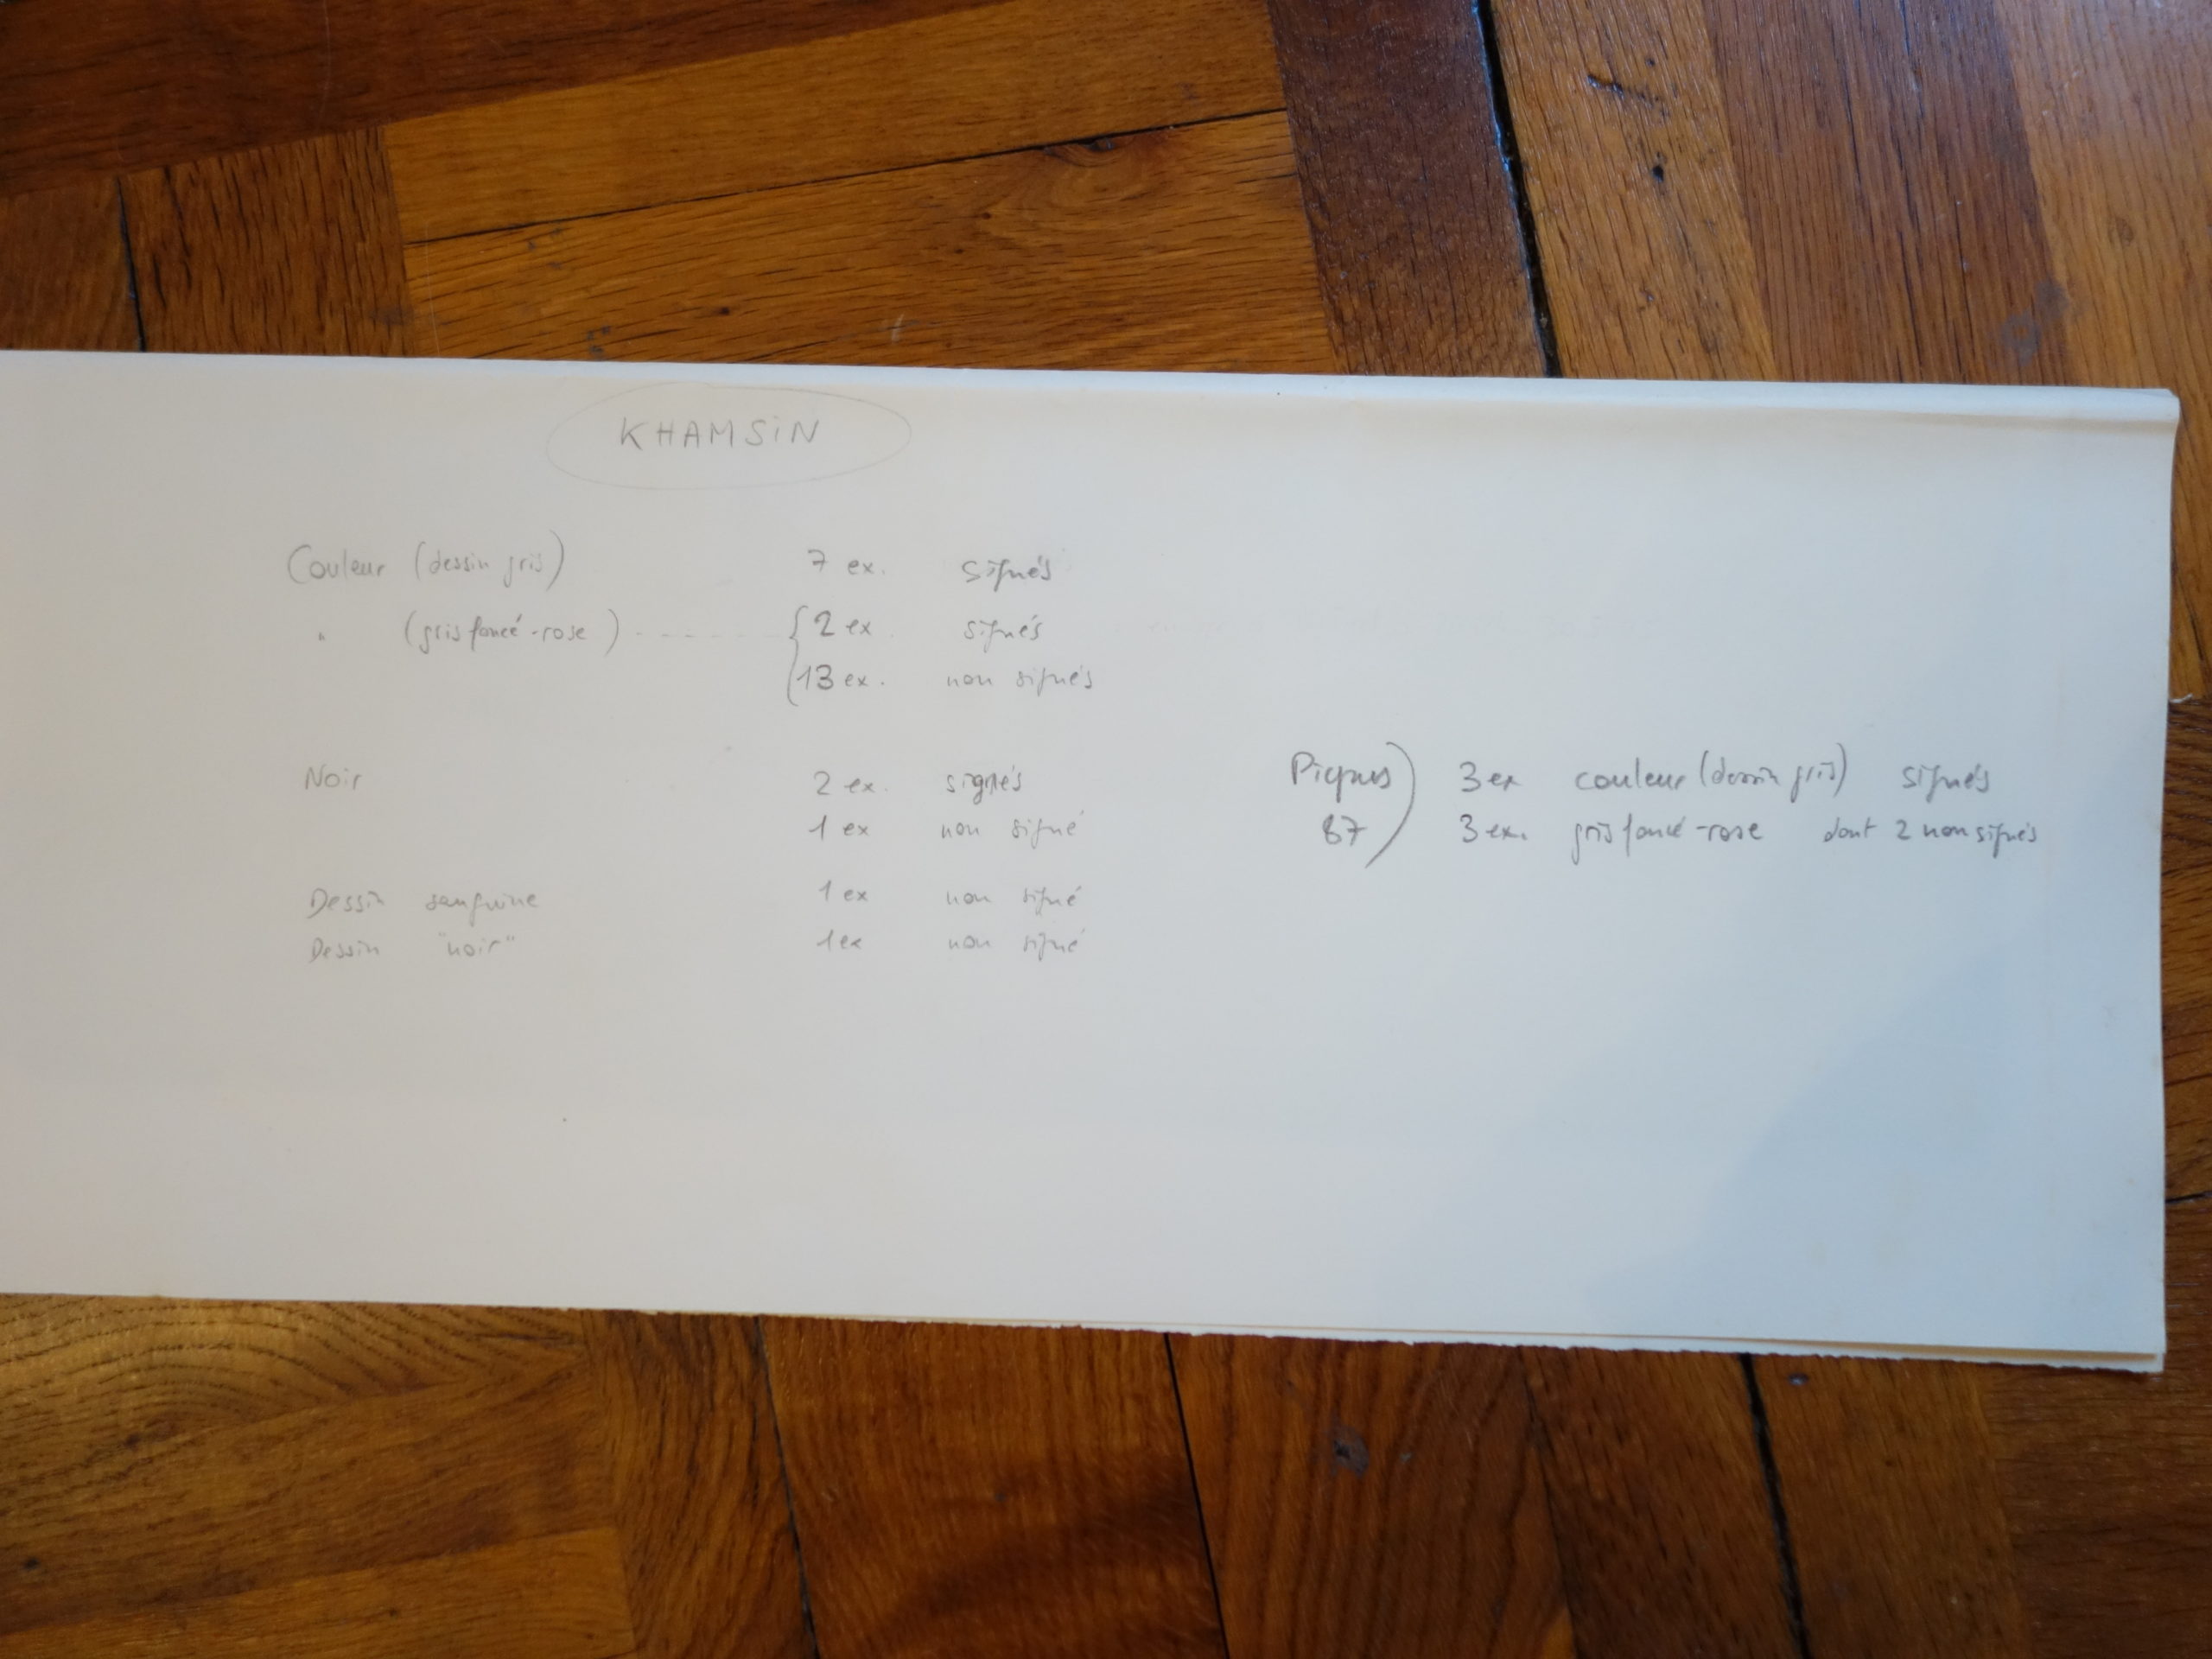 KHAMSiN
Couleur (dessin gris) 7 ex. signés
" (gris foncé-rose) ----- { 2 ex. signés
13 ex. non signés
Noir 2 ex. signés
1 ex non signé
Dessin sanguine 1 ex non signé
Dessin "noir" 1 ex non signé
Piques) 3 ex couleur (dessin gris) signés
87 3 ex. gris foncé-rose dont 2 non signés